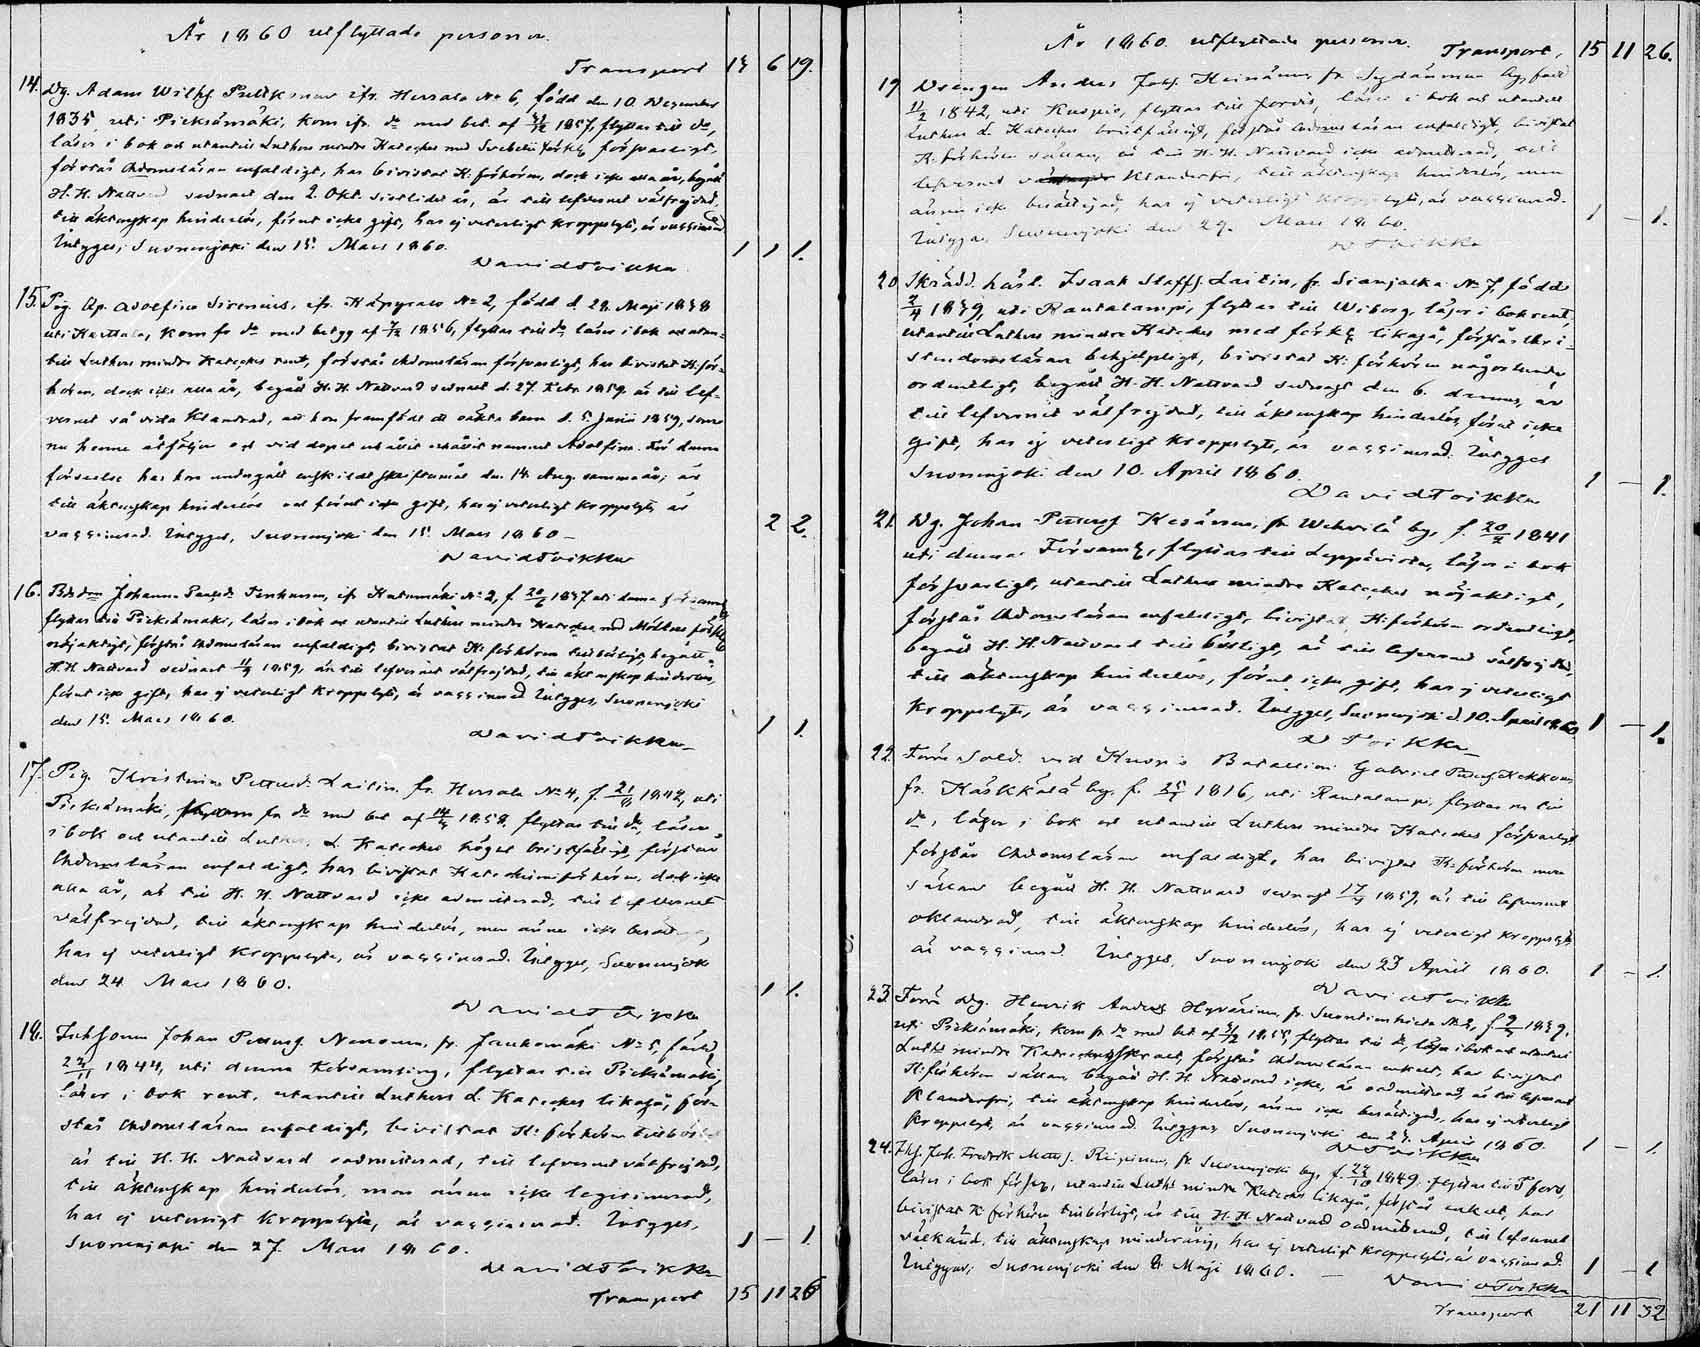 År 1860 utflyttade personer.
Transport 14 6 19.
14. Dg. Adam Wilhj. Pulkkinen ifr. Herrala No 6, född den 10. Dezember
1835, uti Pieksämäki, kom ifr. do med bet. af 31/12 1857, flyttas till do,
läser i bok och utantill Luthers mindre Kateches med Svebelii förkl. försvarligt,
förstår Chdomsläran enfaldigt, har bivistat K: förhören, dock icke alla år, begått
H. H. Nattvard sednast den 2. Okt. sistlidet år, är till lefvernet välfrejdad,
till äktenskap hinderlös, förut icke gift, har ej veterligt kroppslyte, är vaccinerad
Intygger, Suonenjoki den 15. Mars 1860. 1 1 1.
David Toikka
15. Pig. Ap. Adolfina Sirenius, ifr. Käpysalo No 2, född d. 28. Maji 1838
uti Karttula, kom fr do med betyg af 1856, flyttas till do läser i bok och utan-
till Luthers mindre Kateches rent, förstår chdomsläran försvarligt, har bivistat K: för-
hören, dock icke alla år, begått H. H. Nattvard sednast d. 27. Febr. 1859. är till lef-
vernet så vida klandrad, att hon framfödt ett oäkta barn d. 5 Junii 1859, som
nu henne åtföljer och vid dopet erhållit namnet Adolfina. För denna
förseelse har hon undergått enskildt skriftermål den 14. Aug. samma år; är
till äktenskap hinderlös och förut icke gift, har ej veterligt kroppslyte, är
vaccinerad. Intygger, Suonenjoki den 15. Mars 1860 — 2 2.
David Toikka
16. Johanna Tenhunen, ifr Kutumäki No 2, f. 20/6 1837 uti denna Församl.
flyttas till Pieksämäki, läser i bok och utantill Luthers mindre Kateches med Möllers förkl.
nöjaktigt, förstår chdomsläran enfaldigt, bivistat K: förhören tillbörligt, begått
H. H. Nattvard sednast 1859, är till lefvernet välfrejdad, till äktenskap hinderlös,
förut icke gift, har ej veterligt kroppslyte, är vaccinerad Intygger, Suonenjoki
den 15. Mars 1860. 1 1.
David Toikka
17. Pig. Kristina Pettersd. Laitin. fr. Herrala No 4, f. 1842, uti
Pieksämäki, kom fr do med bet af 1858. flyttas till do, läser
i bok och utantill Luthers l. Kateches högst bristfälligt, förstår
Chdomsläran enfaldigt, har bivistat Katechismiförhören, dock icke
alla år, är till H. H. Nattvard icke admitterad, till lefvernet
välfrejdad, till äktenskap hinderlös, men ännu icke
har ej veterligt kroppslyte, är vaccinerad. Intygger, Suonenjoki
den 24 Mars 1860. 1 1.
David Toikka
18. Inhsonen Johan Pettersj. Nenonen, fr. Jauhomäki No 5, född
22/11 1844, uti denna Församling, flyttas till Pieksämäki,
läser i bok rent, utantill Luthers l. Kateches likaså, för-
står chdomsläran enfaldigt, bivistat K: förhören tillbörligt
är till H. H. Nattvard oadmitterad, till lefvernet välfrejdad,
till äktenskap hinderlös, men ännu icke legitimerad,
har ej veterligt kroppslyte, är vaccinerad. Intygger,
Suonenjoki den 27. Mars 1860. 1 — 1.
David Toikka
Transport 15 11 26
År 1860. utflyttade personer. Transport, 15 11 26.
19 Drengen Anders Johs. Heinänen fr. by, född
11/2 1842, uti Kuopio, flyttas till Jorois, läser i bok och utantill
Luthers l. Kateches bristfälligt, förstår chdomsläran enfaldigt, bivistat
K: förhören sällan, är till H. H. Nattvard icke admitterad, till
lefvernet klanderfri, till äktenskap hinderlös, men
ännu icke berättigad, har ej veterligt kroppslyte, är vaccinerad.
Intygar, Suonenjoki den 29. Mars 1860. 1 — 1.
D Toikka
20 Skrädd. häst. Isaak Staffj. Laitin, fr. Sianjalka No 7, född
2/4 1839, uti Rautalampi, flyttas till Wiborg, läser i bok rent,
utantill Luthers mindre Kateches med förkl. likaså, förstår Chri-
stendomsläran behjelpligt, bivistat K: förhören någorlunda
ordentligt, begått H. H. Nattvard sednast den 6. dennes, är
till lefvernet välfrejdad, till äktenskap hinderlös, förut icke
gift, har ej veterligt kroppslyte, är vaccinerad. Intygger
Suonenjoki den 10. April 1860. 1 — 1.
David Toikka
21. Dg. Johan Pettersj Kesänen, fr Wehvilä by, f. 20/2 1841
uti denna Församl., flyttas till Leppävirta, läser i bok
försvarligt, utantill Luthers mindre Kateches nöjaktigt,
förstår Chdomsläran enfaldigt, bivistat K: förhören ordentligt,
begått H. H. Nattvard tillbörligt, är till lefvernet välfrejdad,
till äktenskap hinderlös, förut icke gift, har ej veterligt
kroppslyte, är vaccinerad. Intygger, Suonenjoki d. 10. April 1860 1 — 1.
D Toikka
22. Förre Sold. vid Kuopio Batallion Gabriel Kekkonen
fr. Kärkkälä by, f. 1816, uti Rautalampi, flyttas nu till
do, läser i bok och utantill Luthers mindre Kateches försvarligt
förstår Chdomsläran enfaldigt, har bivistat K: förhören men
sällan begått H. H. Nattvard sednast 1859, är till lefvernet
oklandrad, till äktenskap hinderlös, har ej veterligt kroppslyte
är vaccinerad Intygger, Suonenjoki den 23 April 1860. 1 — 1.
David Toikka
23. Förre Dg. Henrik Anders Hyvärinen, fr. Suontientaka No 2, f. 1839.
uti Pieksämäki, kom fr do med bet af 1855, flyttas till do, läser i bok och utantill
Luths mindre Kateches, förstår chdomsläran enkelt, har bivistat
K: förhören sällan, begått H. H. Nattvard icke, är oadmitterad, är till lefvernet
klanderfri, till äktenskap hinderlös, ännu icke berättigad, har ej veterligt
kroppslyte, är vaccinerad. Intygger Suonenjoki den 27. April 1860. 1 — 1.
D Toikka
24. Joh. Fredrik Mattsj. fr Suonenjoki by, f. 1849. flyttas till
läser i bok förs., utantill Luths mindre Kateches likaså, förstår enkelt, har
bivistat K förhören tillbörligt, är till H. H. Nattvard oadmitterad, till lefvernet
välkänd, till äktenskap minderårig, har ej veterligt kroppslyte, är vaccinerad.
Intygar; Suonenjoki den 8. Maji 1860. 1 — 1
David Toikka
Transport 21 11 32